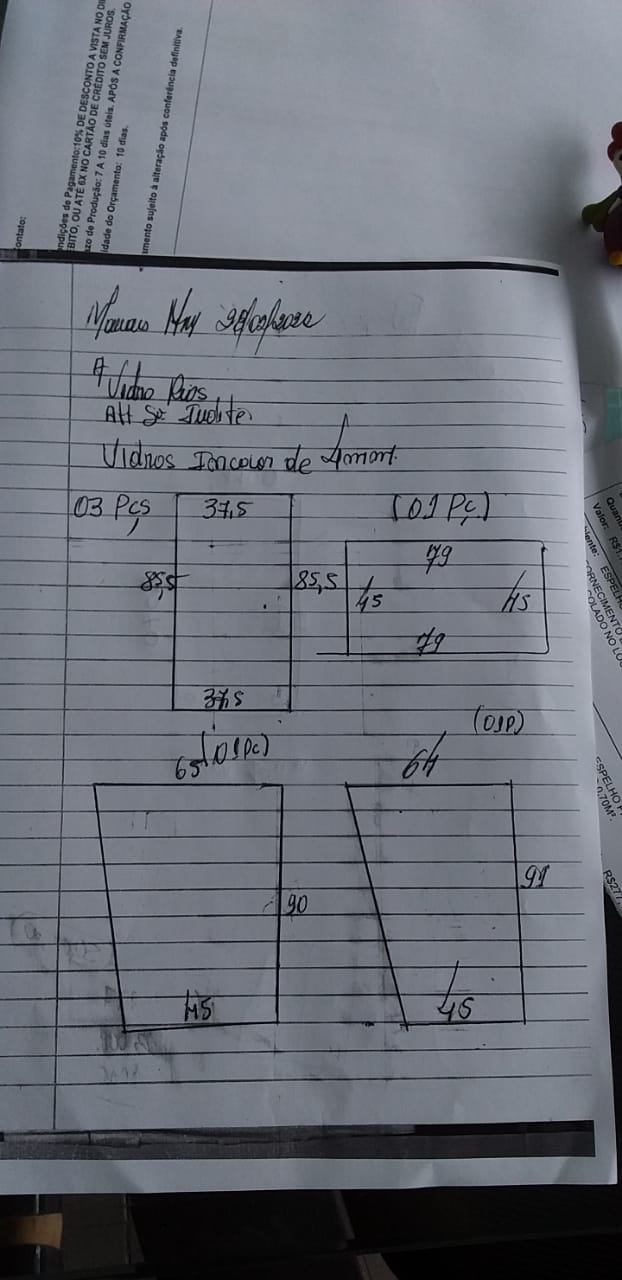 ontato:
ndições de Pagamento:10% DE DESCONTO A VISTA NO DI
BITO, OU ATÉ 6X NO CARTÃO DE CRÉDITO SEM JUROS.
zo de Produção: 7 A 10 dias úteis. APÓS A CONFIRMAÇÃO
idade do Orçamento: 10 dias.
mento sujeito à alteração após conferência definitiva.
Manaus
A
Vidro Rios
Att Sr
Vidros Incolor de 4mm
03 Pçs
37,5
85,5
85,5
37,5
(01 Pç)
79
45
45
79
65 (01 Pc)
90
45
(01P)
64
91
45
Quant
Valor: R$1
ente: ESPELH
ORNECIMENTO E
OLADO NO LO
ESPELHO F
0,70M².
R$277,